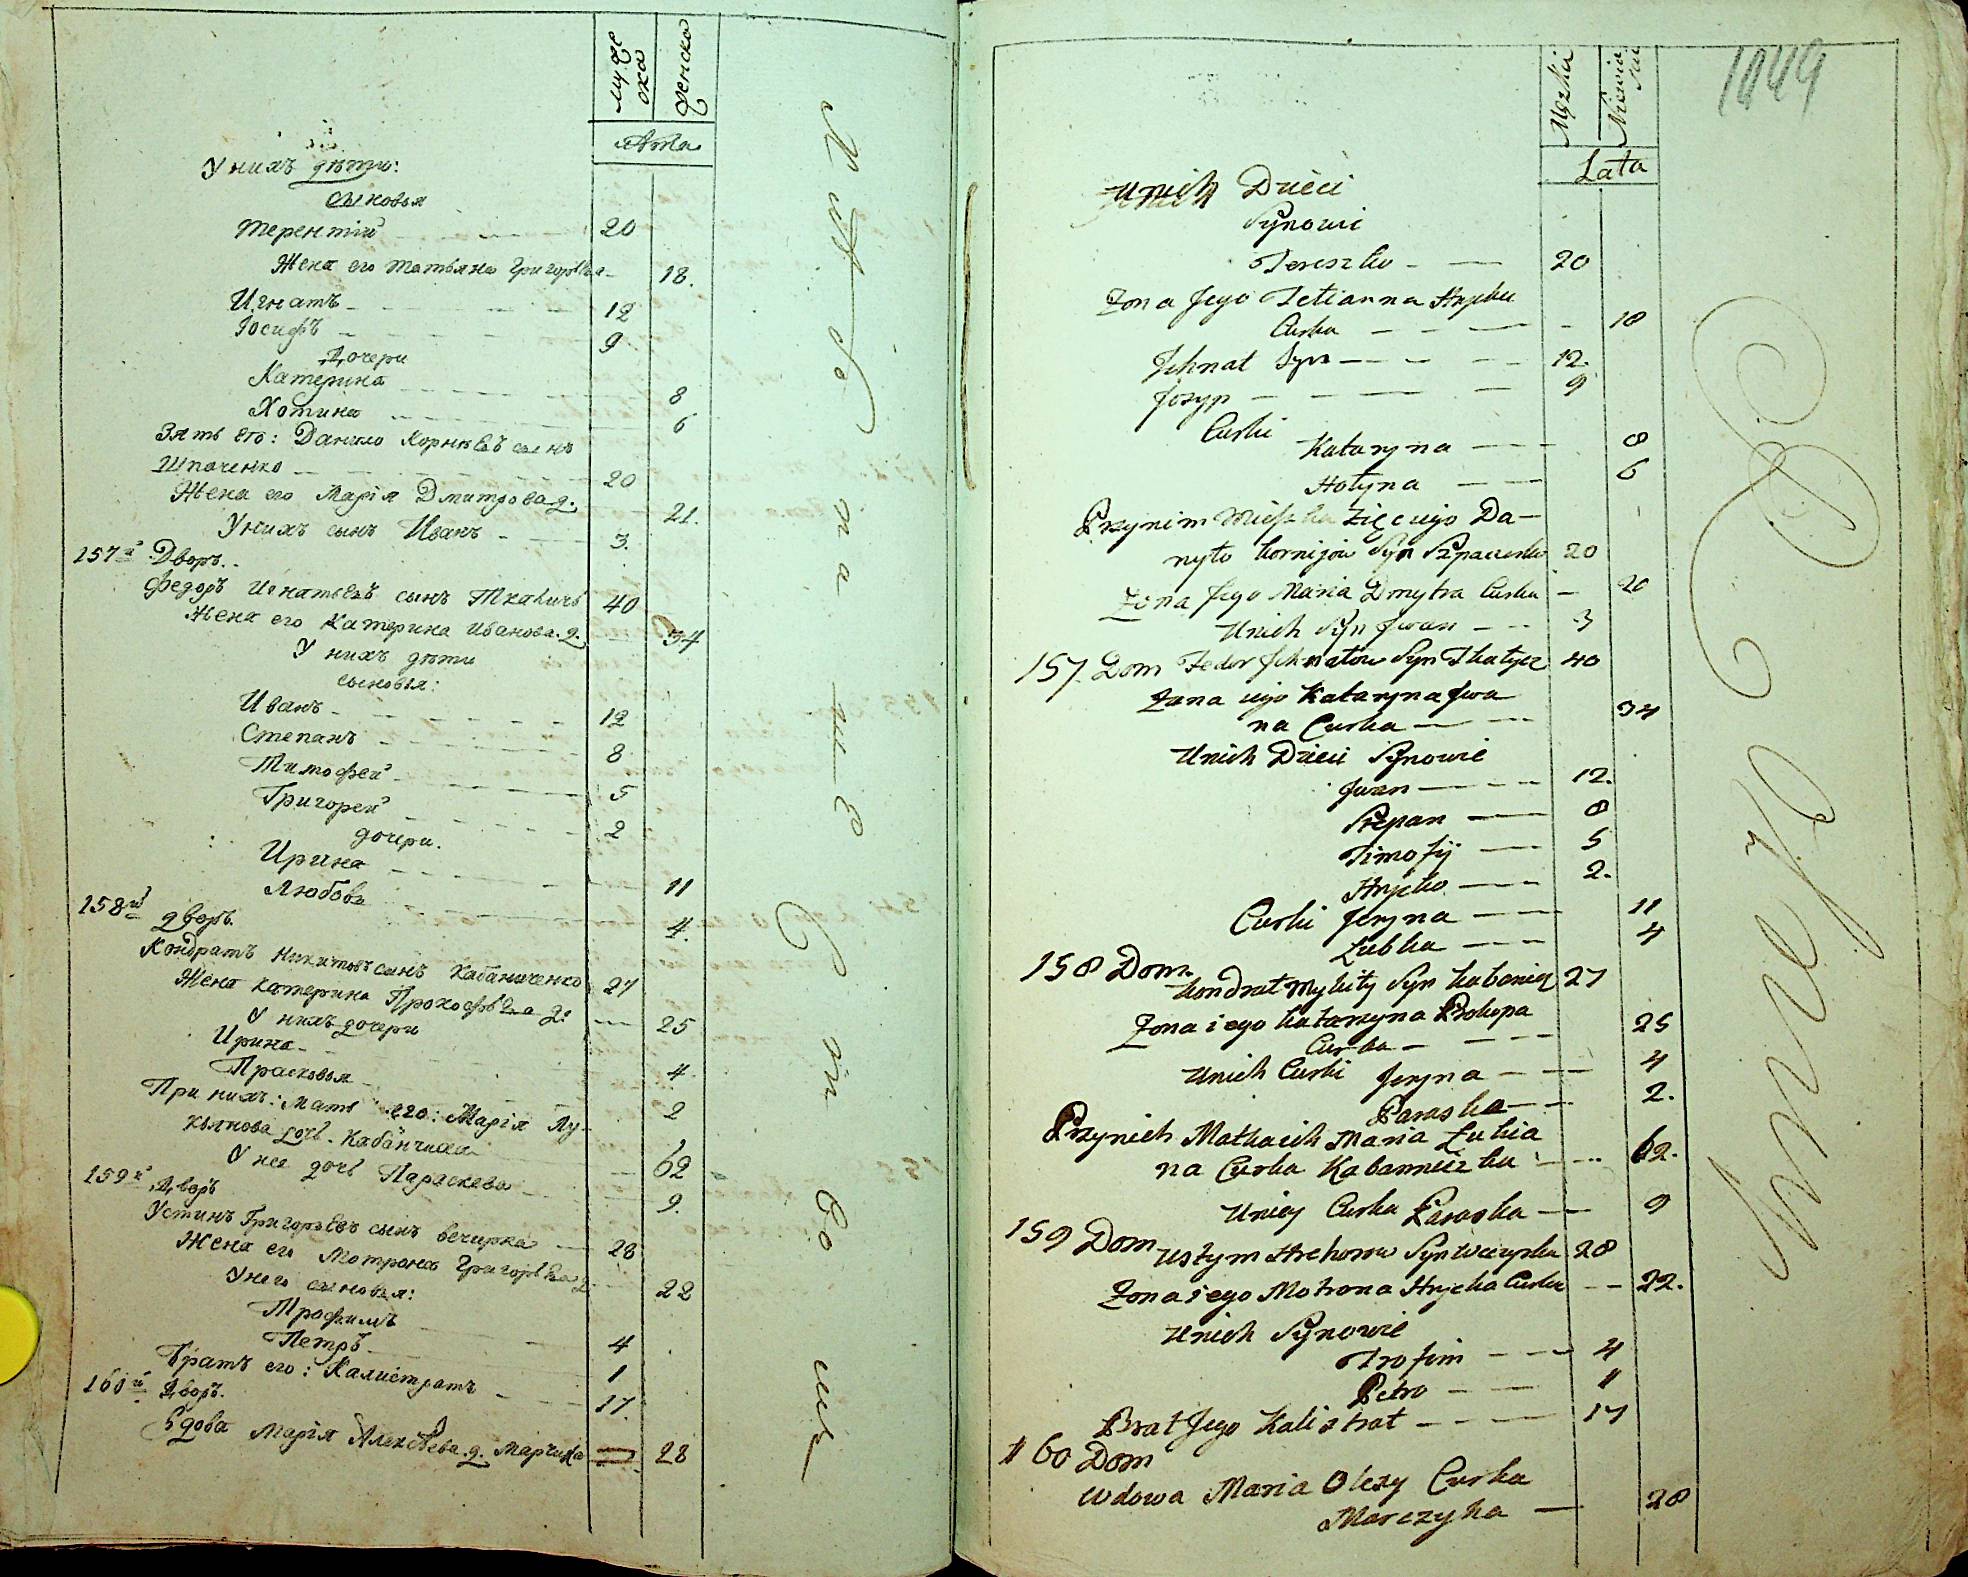 мужеска
женска
лѣта
У нихъ дѣти:
сыновья
Терентій 20
Жена его Татьяна Григорьева 18.
Игнатъ 12
Іосифъ 9
Дочери
Катерина 8
Хотина 6
Зять его: Данило Корнѣевъ сынъ
Шпаченко 20
Жена его Марія Дмитрова д. 21.
У нихъ сынъ Иванъ 3.
157й Дворъ.
Федоръ Игнатьевъ сынъ Ткачичъ 40
Жена его Катерина Иванова д. 34
У нихъ дѣти
сыновья:
Иванъ 12
Степанъ 8
Тимофей 5
Григорей 2
дочери.
Ирина 11
Любовь 4.
158й дворъ.
Кондратъ Никитовъ сынъ Кабаниченко 27
Жена Катерина Прокофьева д: 25
У нихъ дочери
Ирина 4
Прасковья 2
При нихъ: Мать его: Марія Лу-
кьянова дочь Кабанчиха 62
У нее дочь Параскева 9.
159й Дворъ
Устинъ Григорьевъ сынъ вечирка 28
Жена его Мотрона Григорьева д 22
У него сыновья:
Трофимъ 4
Петръ 1
Братъ его: Калистратъ 17.
160й Дворъ.
Вдова Марія Алексѣева д. Марчиха 28
1049
Męzka
Lata
Unich Dzieci
Synowie
Tereszko 20
Zona Jego Tetianna Hryćka
Curka 18
Jehnat Syn 12.
Jozyp 9
Curki
Kataryna 8
Hotyna 6
Przynim Mieszka Zięć iego Da-
nyło Kornijow Syn Szpaczenko 20
Zona Jego Maria Dmytra Curka 20
Unich Syn Jwan 3
157 Dom Fedor Jehnatow Syn Tkatycz 40
Zona iego Kataryna Jwa
na Curka 34
Unich Dzieci Synowie
Jwan 12.
Stepan 8
Timofij 5
Hryćko 2.
Curki Jeryna 11
Lubka 4
158 Dom
Kondrat Mykity Syn Kabanicz 27
Zona iego Katarzyna Prokopa
Curka 25
Unich Curki Jeryna 4
Paraska 2.
Przynich Matka ich Maria Łukia
na Curka Kabanniczka 62.
Uniey Curka Paraska 9
159 Dom
Ustym Hrehorow Syn Weczyrka 28
Zona iego Motrona Hryćka Curka 22.
Unich Synowie
Trofim 4
Petro 1
Brat Jego Kalistrat 17
160 Dom
Wdowa Maria Olexy Curka
Marczyha 28